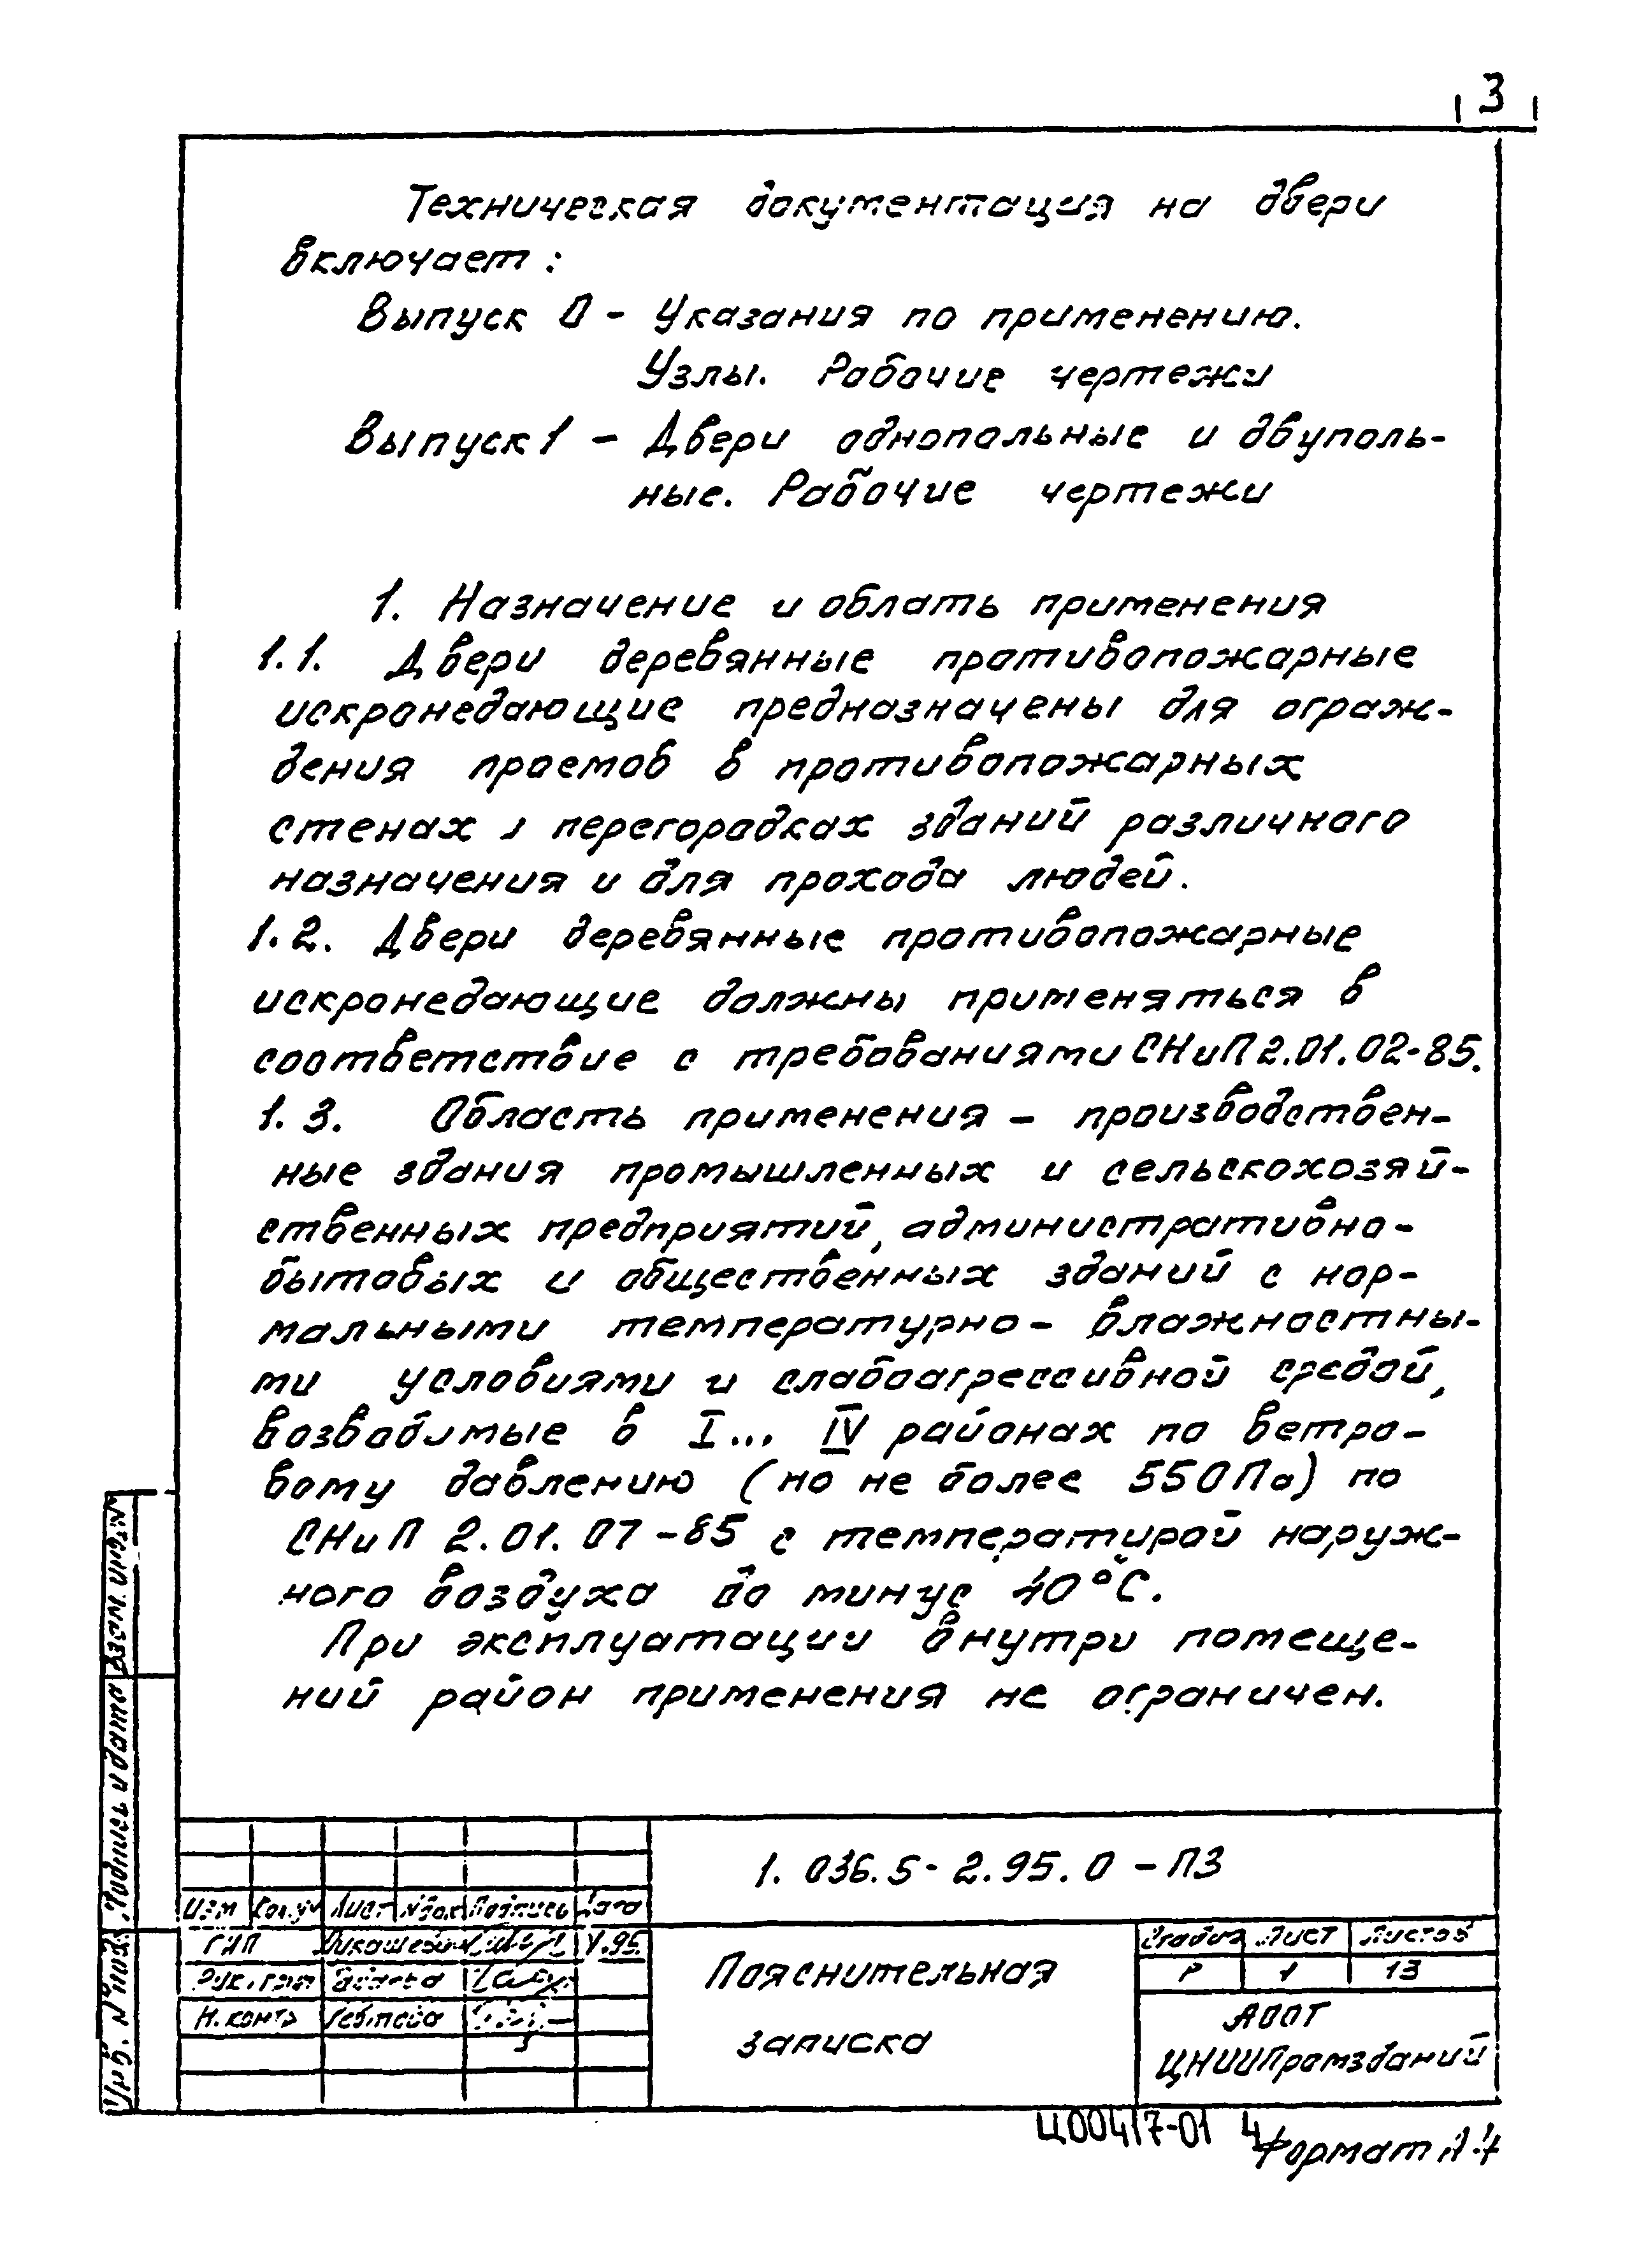 3
Техническая документация на двери
включает:
Выпуск 0 - Указания по применению.
Узлы. Рабочие чертежи
Выпуск 1 - Двери однопольные и двуполь-
ные. Рабочие чертежи
1. Назначение и облать применения
1.1. Двери деревянные противопожарные
искронедающие предназначены для ограж-
дения проемов в противопожарных
стенах и перегородках зданий различного
назначения и для прохода людей.
1.2. Двери деревянные противопожарные
искронедающие должны применяться в
соответствие с требованиями СНиП 2.01.02-85.
1.3. Область применения - производствен-
ные здания промышленных и сельскохозяй-
ственных предприятий, административно-
бытовых и общественных зданий с нор-
мальными температурно- влажностны-
ми условиями и слабоагрессивной средой,
возводимые в I... IV районах по ветро-
вому давлению (но не более 550Па) по
СНиП 2.01.07-85 с температурой наруж-
ного воздуха до минус 40°С.
При эксплуатации внутри помеще-
ний район применения не ограничен.
1.036.5-2.95.0-ПЗ
Изм Кол.уч Лист №док Подпись Дата
ГИП V.95
Рук. гр
Н.контр
Пояснительная
записка
Стадия Лист Листов
Р 1 13
АООТ
ЦНИИПромзданий
Инв. № подл. Подпись и дата Взам. инв. №
Ц00417-01 4
Формат А4